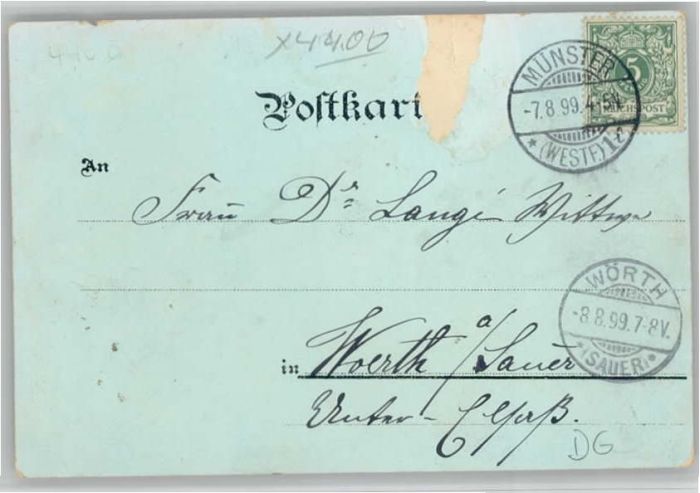 x44.00
Postkart
MÜNSTER
-7.8.99.4-5N.
* (WESTF.) 1 c
5
REICHSPOST
An
Frau Dr. Lange Wittwe
WÖRTH
-8.8.99.7-8V.
*(SAUER)*
in Woerth a/Sauer
Unter-Elsaß.
DG